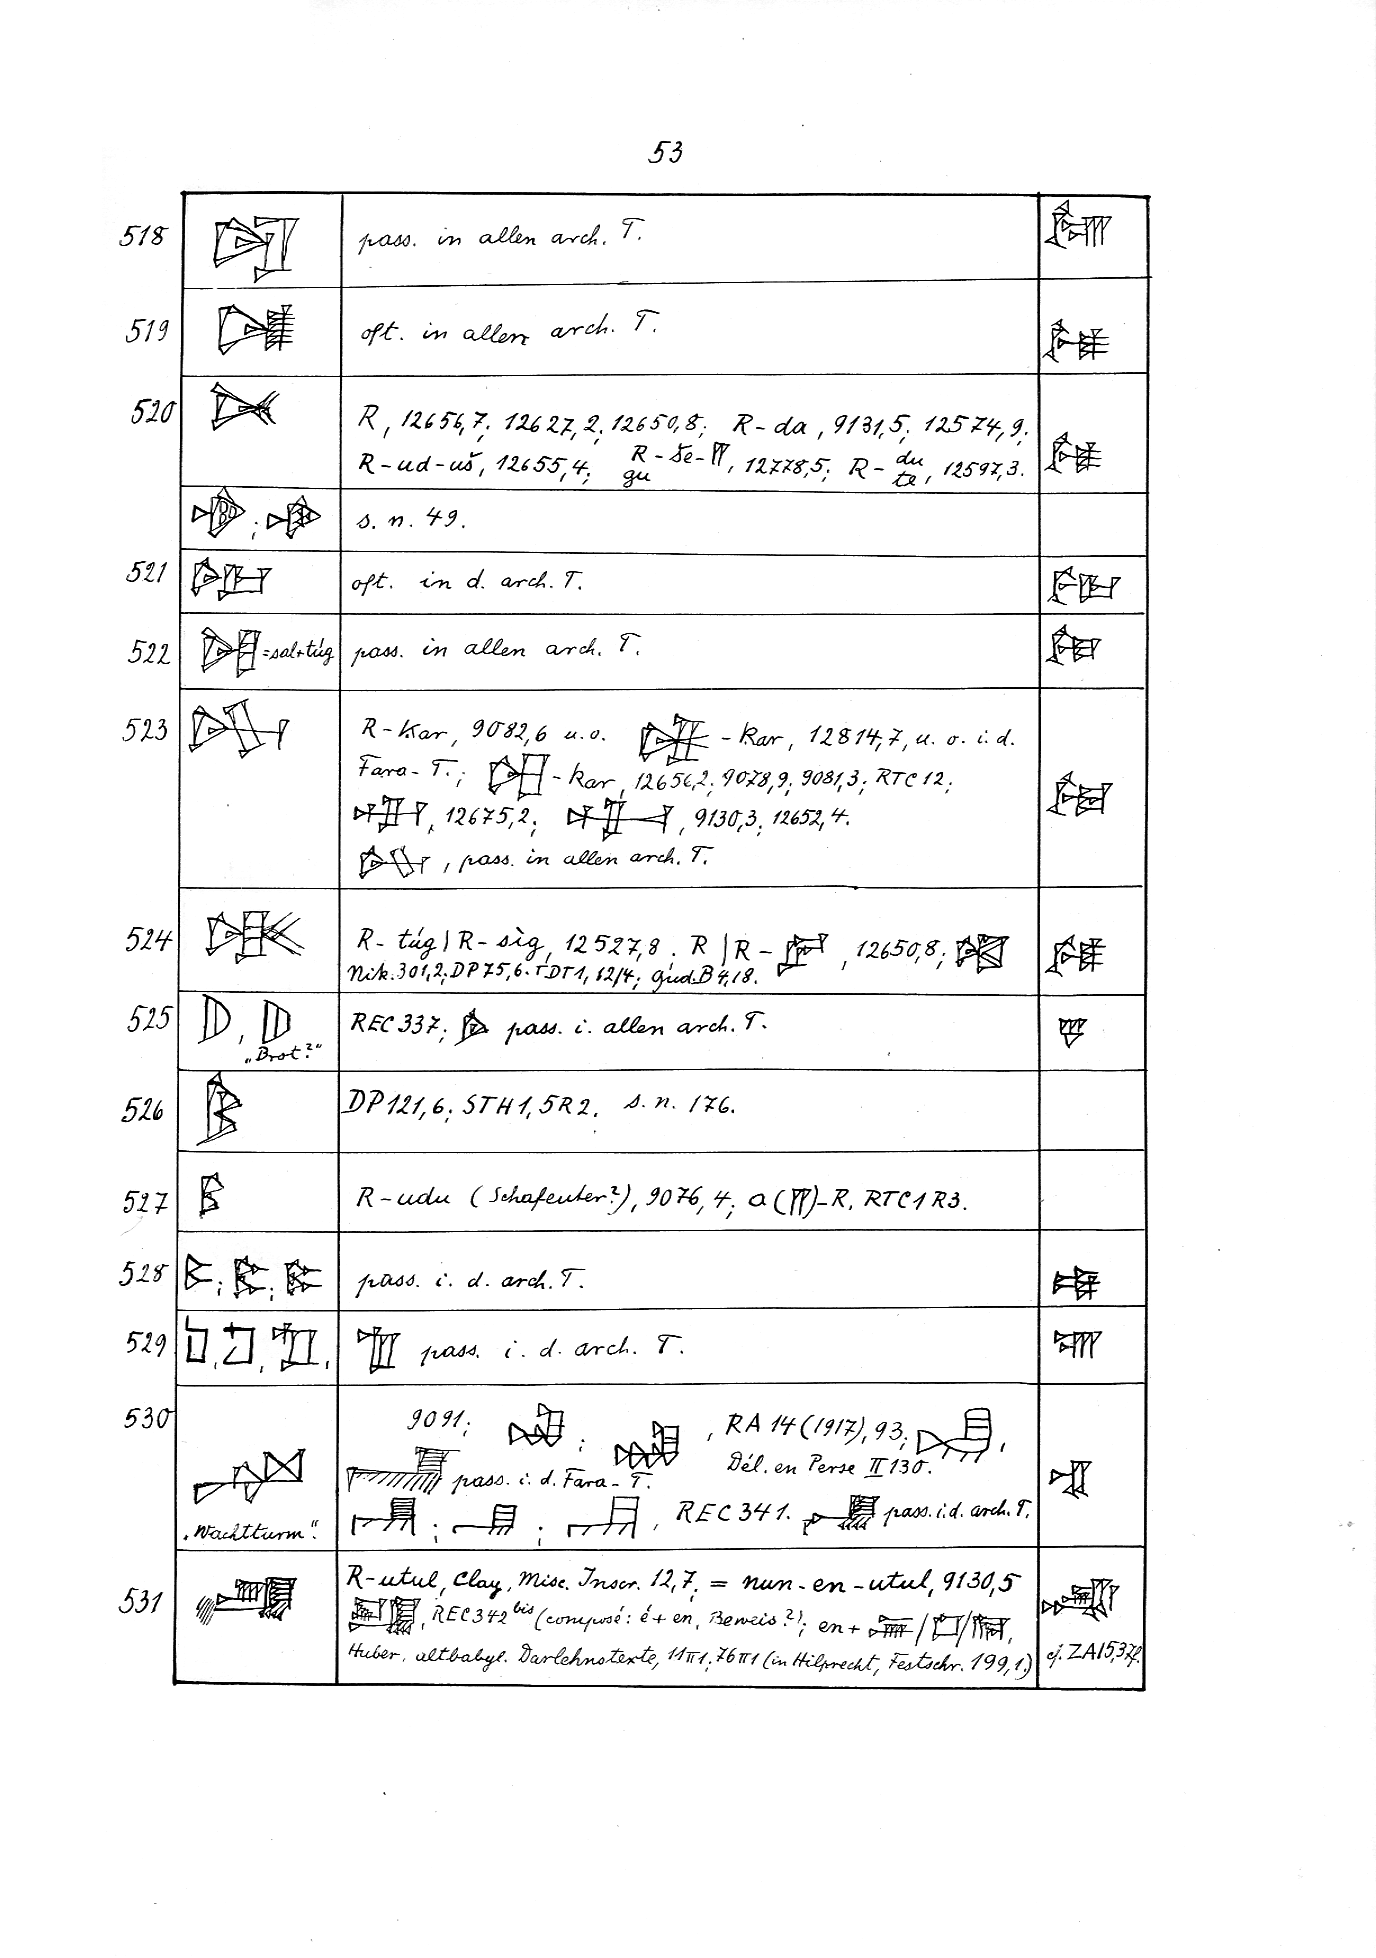 53
518 pass. in allen arch. T.
519 oft. in allen arch. T.
520 R, 12656,7; 12627,2; 12650,8; R-da, 9131,5; 12574,9;
R-ud-uš, 12655,4; R-še- gu, 12778,5; R-du te, 12597,3.
; s. n. 49.
521 oft. in d. arch. T.
522 =sal+túg pass. in allen arch. T.
523 R-kar, 9082,6 u.o. -kar, 12814,7, u. o. i. d.
Fara-T.; -kar, 12656,2; 9078,9; 9081,3; RTC 12;
, 12675,2; , 9130,3; 12652,4.
, pass. in allen arch. T.
524 R-túg | R-sìg, 12527,8. R | R- , 12650,8;
Nik. 301,2; DP 75,6. Gud. B 4,18.
525 , REC 337; pass. i. allen arch. T.
„Brot?“
526 DP 121,6; STH 1, 5 R 2. s. n. 176.
527 R-udu (Schafeuter?), 9076,4; a( )-R, RTC 1 R 3.
528 ; ; pass. i. d. arch. T.
529 , , , pass. i. d. arch. T.
530 9091; ; , RA 14 (1917), 93; ,
Dél. en Perse II 130.
pass. i. d. Fara-T.
„Wachtturm“. ; ; , REC 341. pass. i. d. arch. T.
531 R-utul, Clay, Misc. Inscr. 12,7, = nun-en-utul, 9130,5
, REC 342 bis (composé: é + en, Beweis?); en + / / ,
Huber, altbabyl. Darlehnstexte, 11 II 1; 76 II 1 (in Hilprecht, Festschr. 199,1.) cf. ZA 15,37f.